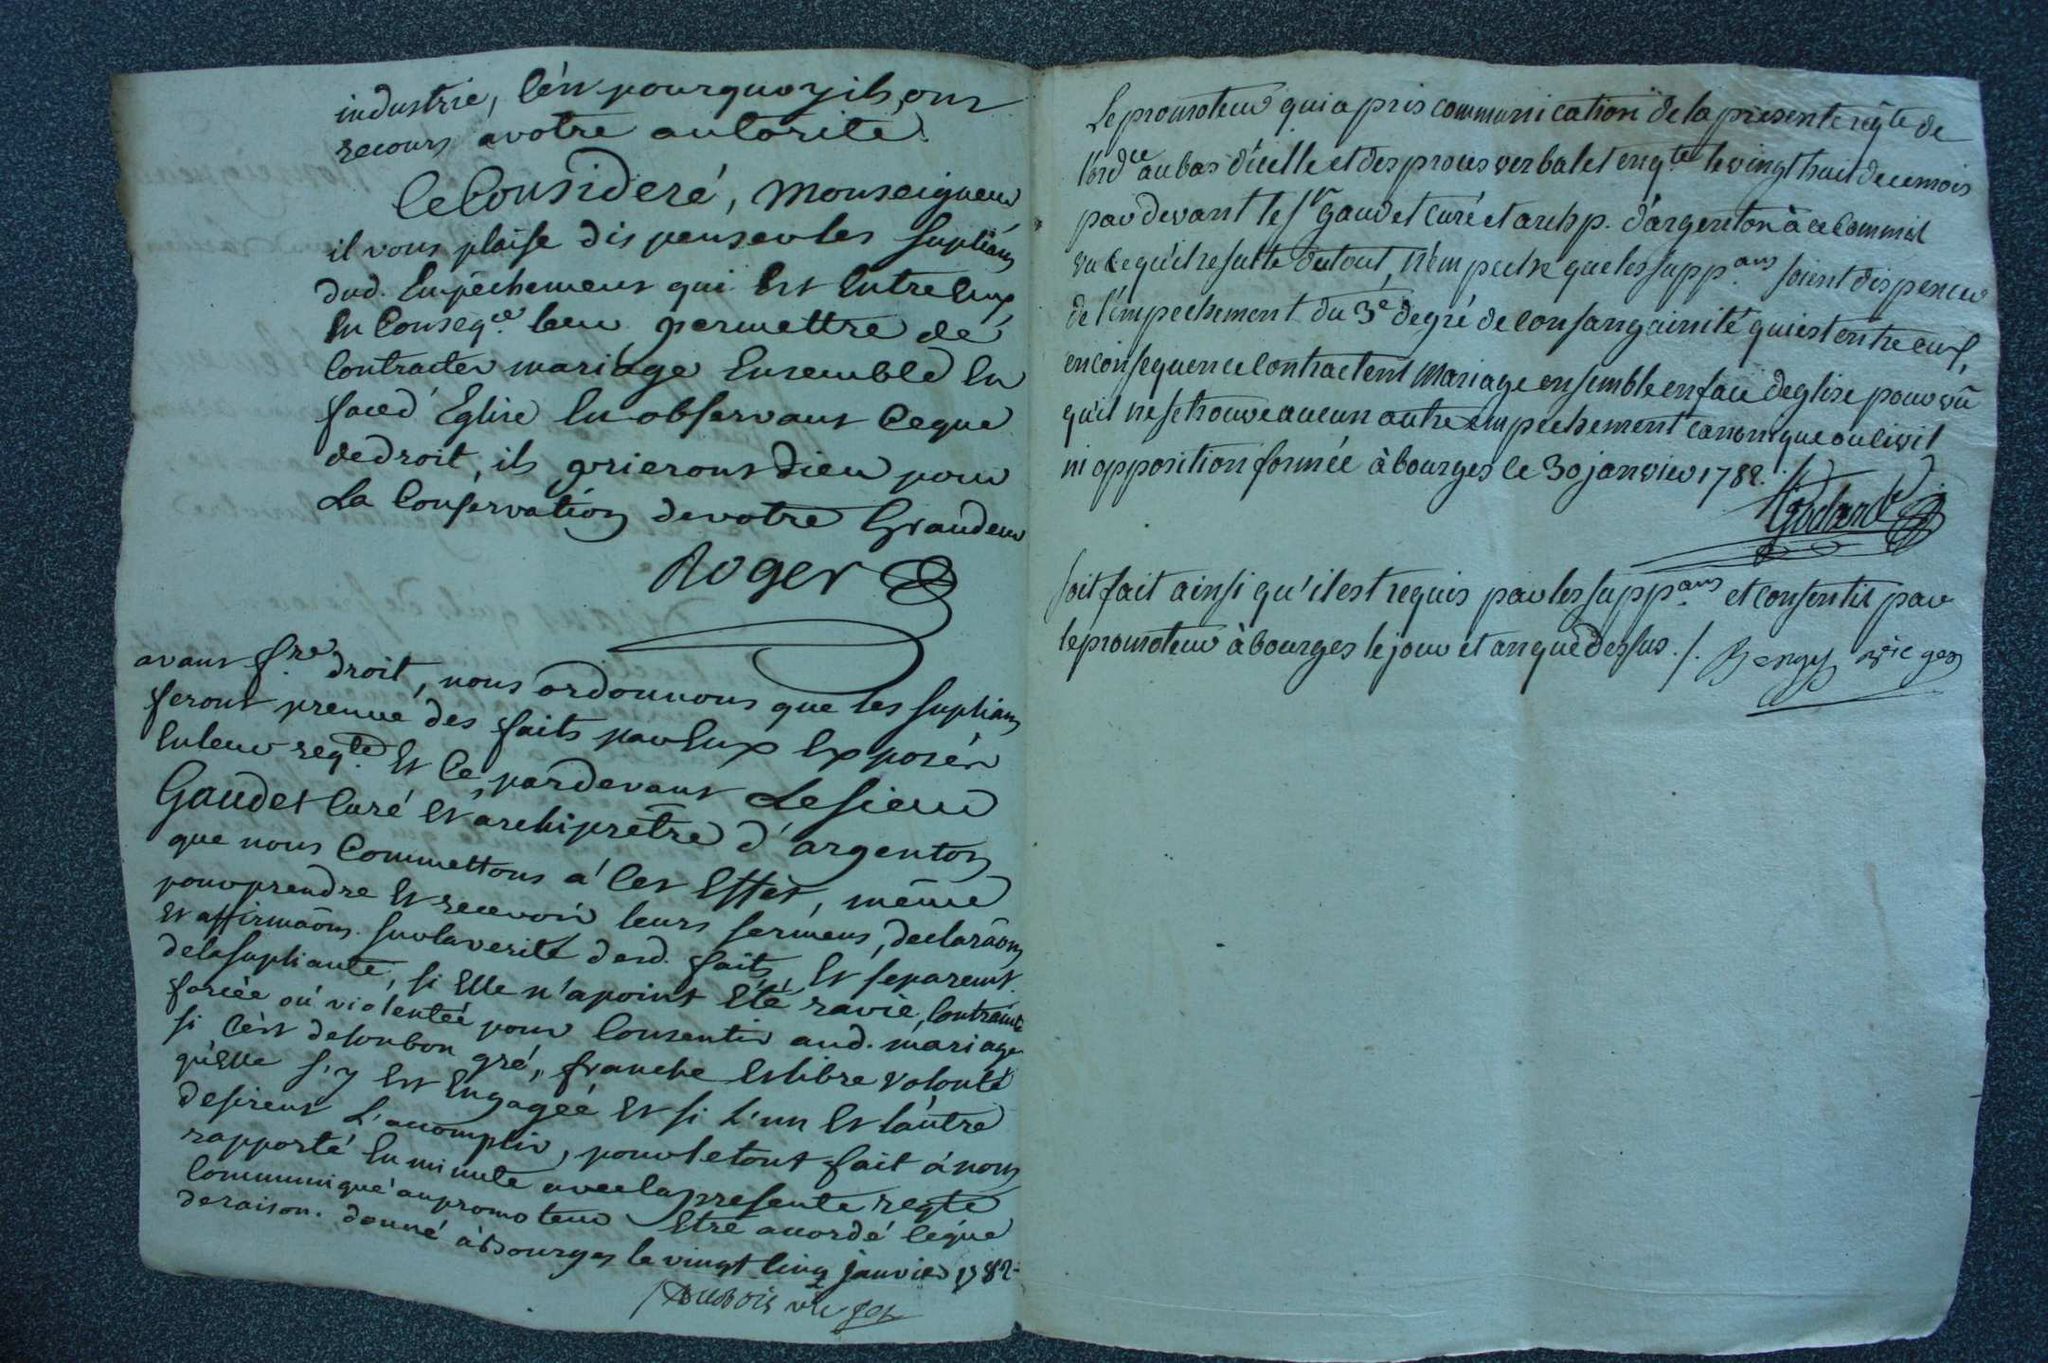 industrie, c'est pourquoy ils ont
recours a votre autorité.
Ce Consideré, Monseigneur
il vous plaise dispenser les suplians
dud. Empéchement qui Est Entre Eux,
En Conseqce leur permettre de
Contracter mariage Ensemble En
face d'Eglise En observant Ce que
de droit, ils prieront Dieu pour
La Conservation de votre Grandeur
Roger
avant fre droit, nous ordonnons que les suplians
feront preuve des faits par Eux Exposés
En leur reqte Et Ce, pardevant Le sieur
Gaudet Curé Et archiprétre d'argenton
que nous Commettons a Cet Effet, même
pour prendre Et recevoir leurs sermens, declaraons
Et affirmaons sur la verité desd. faits, Et separemt
de la supliante, si Elle n'a point Eté ravie, Contrainte
forcée ou violentée pour Consentir aud. mariage
si C'est de son bon gré, franche Et libre volonté
qu'Elle s'y Est Engagée Et si L'un Et l'autre
desirent L'accomplir, pour le tout fait a nous
rapporté En minute avec la presente reqte
Communiqué au promoteur Etre accordé Ce que
de raison. donné à Bourges le vingt Cinq janvier 1782
vic gen
Le promoteur qui a pris communication de la presente reqte de
l'ordce au bas d'icelle et des proces verbal et enqte le vingt huit de ce mois
par devant le sr Gaudet curé et archp. d'argenton à ce Commis
vu ce qu'il resulte du tout, n'empeche que les suppans soient dispenses
de l'empechement du 3e degré de consanguinité qui est entre eux,
en consequence contractent mariage ensemble en face d'eglise pourvû
qu'il ne se trouve aucun autre empechement canonique ou civil
ni opposition formée à bourges le 30 janvier 1782./.
Godard
soit fait ainsi qu'il est requis par les suppans et consenti par
le promoteur à bourges le jour et an que dessus ./. Bengy vic gen